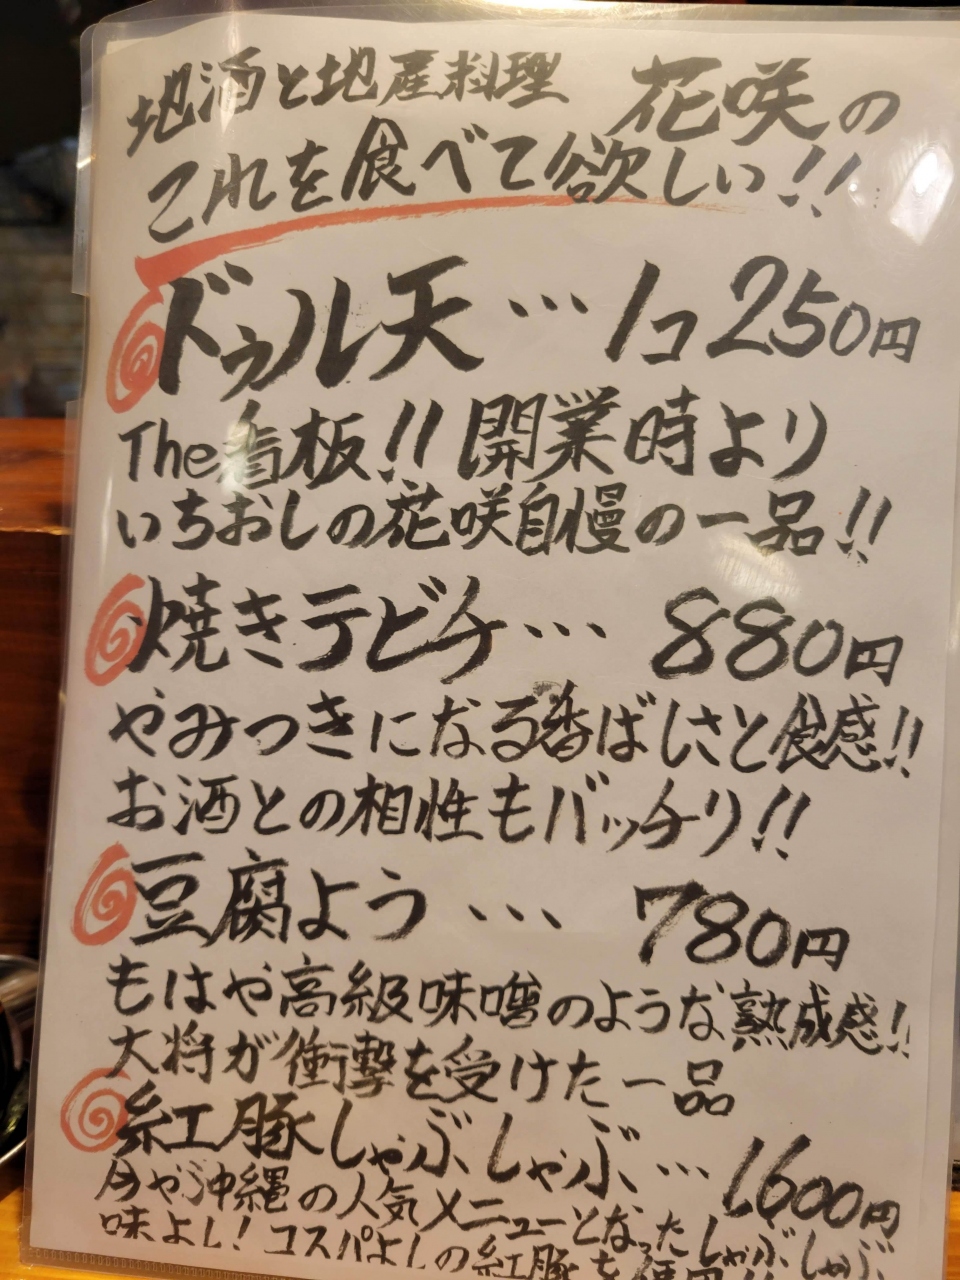 地酒と地産料理 花咲の
これを食べて欲しい!!
ドゥル天…1コ250円
The看板!!開業時より
いちおしの花咲自慢の一品!!
焼きテビチ… 880円
やみつきになる香ばしさと食感!!
お酒との相性もバッチリ!!
豆腐よう … 780円
もはや高級味噌のような熟成感!!
大将が衝撃を受けた一品
紅豚しゃぶしゃぶ…1600円
今や沖縄の人気メニューとなったしゃぶしゃぶ
味よし!コスパよしの紅豚を使用